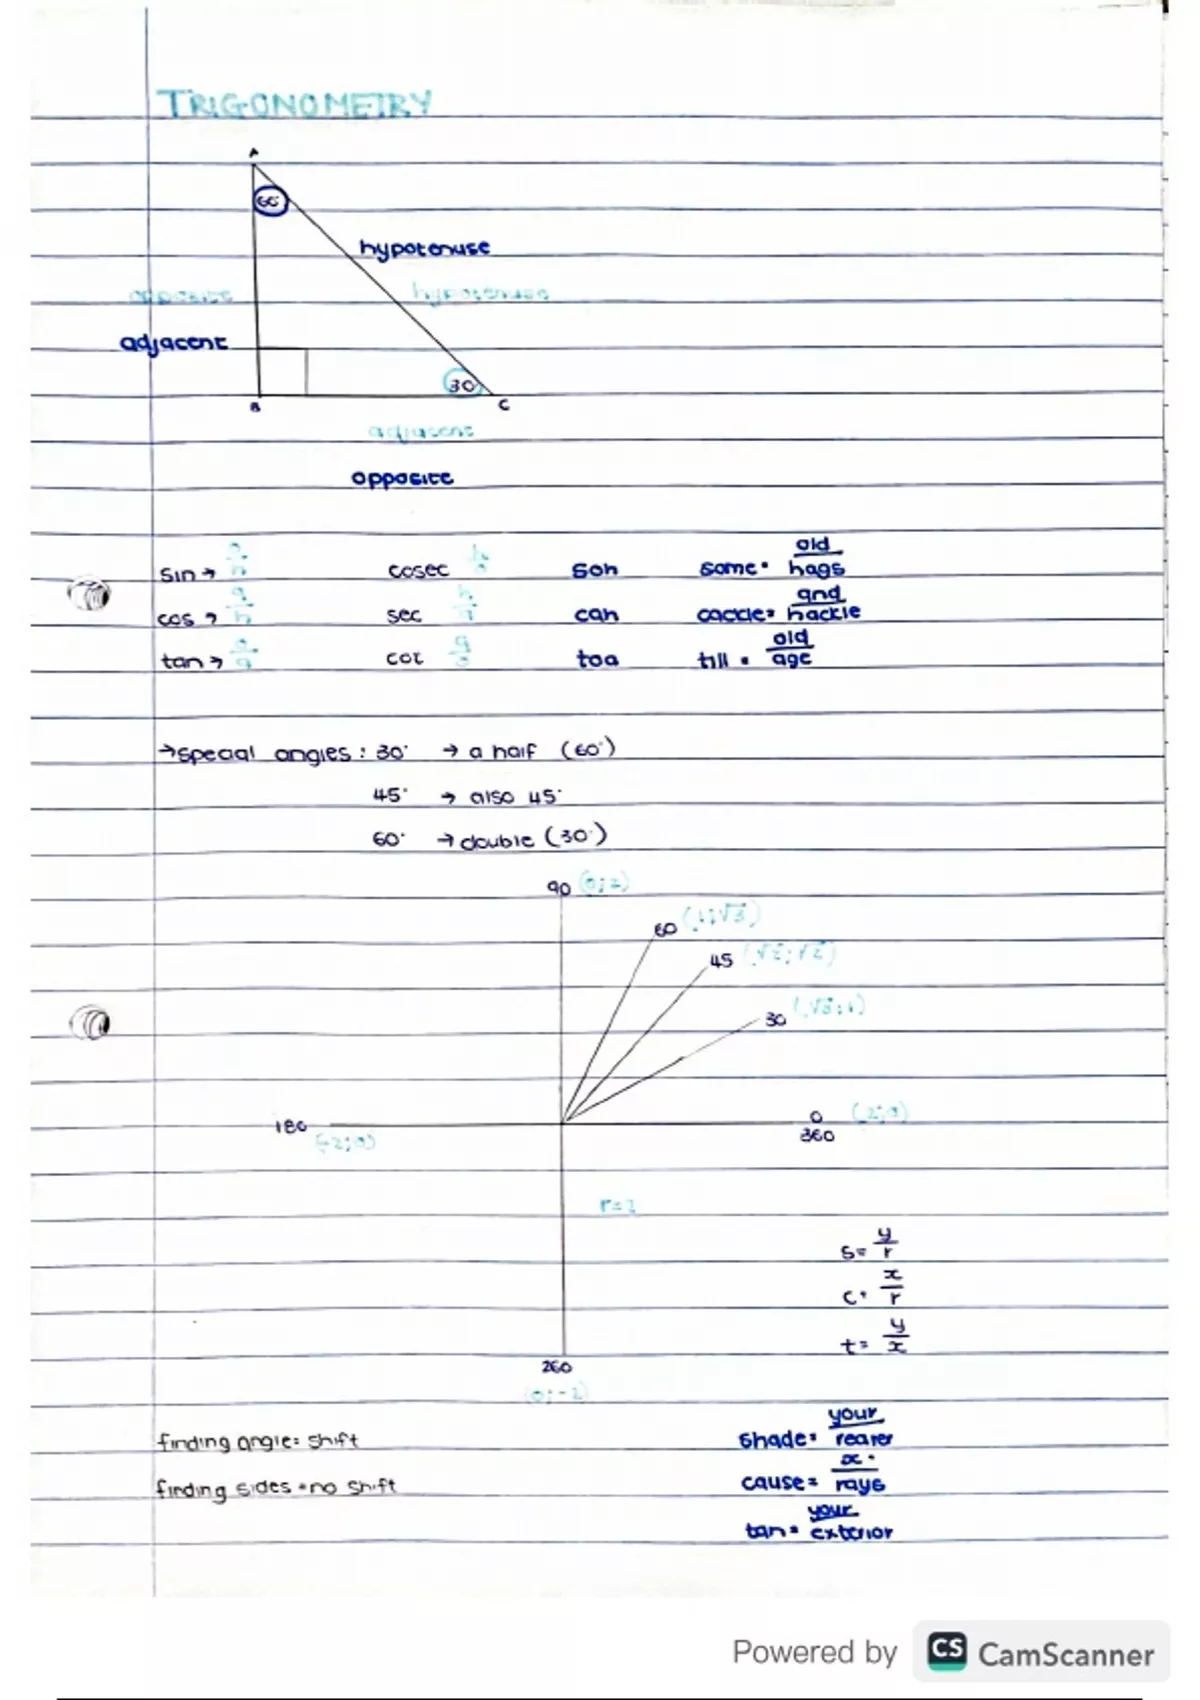 TRIGONOMETRY
A
60°
hypotenuse
opposite hypotenuse
adjacent
30°
B C
adjacent
opposite
sin → o/h cosec h/o soh some = old/hags
cos → a/h sec h/a cah cackle = and/hackle
tan → o/a cot a/o toa till = old/age
→ special angles : 30° → a half (60°)
45° → also 45°
60° → double (30°)
90 (0;2)
60 (1;√3)
45 (√2;√2)
30 (√3;1)
180 (-2;0) 0 (2;0)
360
r=2
s= y/r
c= x/r
t= y/x
260
(0;-2)
finding angle= shift shade= your/rearer
finding sides = no shift cause= x/rays
tan= your/exterior
Powered by CS CamScanner